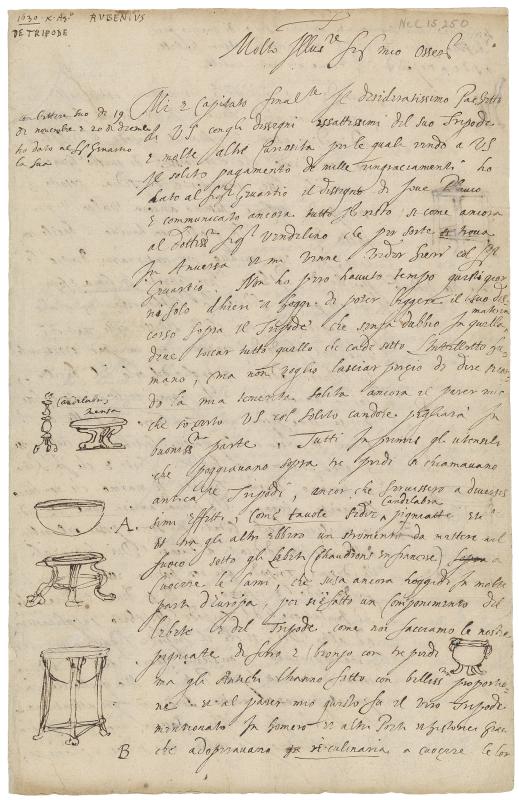 1630 x Agº RUBENIUS
DE TRIPODE
NcC 15,250
Molto Illusre Sigr mio Ossermo
con lettere suo di 19
di novembre e 20 di decemb
ho dato al Sigr Gevartio
la sua
Mi è Capitato finalte Il desideratissimo Pachetto
di VS con gli dissegni essattissimi del suo Tripode
e molte altre Curiosita per le quali rendo a VS
Il solito pagamento di mille ringraciamenti ho
dato al Sigr Gevartio il dissegno di Jove Pluvio
e communicato ancora tutto Il resto si come ancora
al dottissmo Sigr Vendilino che per sorte si trova
In Anversa et mi vinne veder hieri col Sigr
Gevartio. Non ho pero havuto tempo
no solo d'hieri a hogge di poter leggere il suo dis
corso sopra Il Tripode che senza dubbio In quella materia
deve toccar tutto quello che cade sotto l'Intelletto hu
mano, ma non voglio lasciar perciò di dire
do la mia temerita solita ancora il parer mio
che so certo VS col solito candore pigliarà In
buonissma parte. Tutti In primis gli utensili
che posavano sopra tre piedi si chiamavano
anticate Tripodi, ancor che servissero a diversis
simi effetti, Come tavole sedie candelabra pignatte etc
et tra gli altri ebbero un stromento da mettere nel
fuoco sotto gli Lebeti (Chaudrons en francese) a
Cuocere le carni, che s'usa ancora hoggidi In molte
parti d'Europa, poi si è fatto un Componimento del
Lebete et del Tripode come noi facciamo le nostre
pignatte di ferro e bronzo con tre piedi
ma gli Antichi l'hanno fatto con bellissma proportio
ne et al parer mio questo fu il vero Tripode
mentionato In Homero et altri Poeti et historici Greci
che adopravano in re culinaria a cuocere le lor
Candelabri
Mensa
A.
B